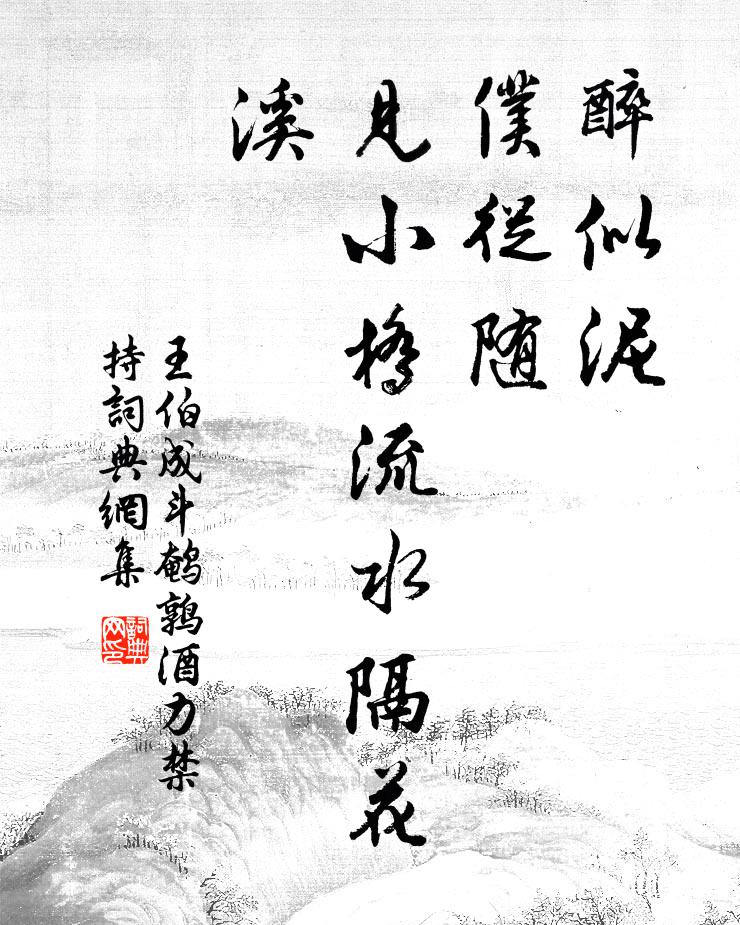 醉似泥
僕從随
見小橋流水隔花
溪
王伯成斗鹌鹑酒力禁
持詞典網集
詞典网印